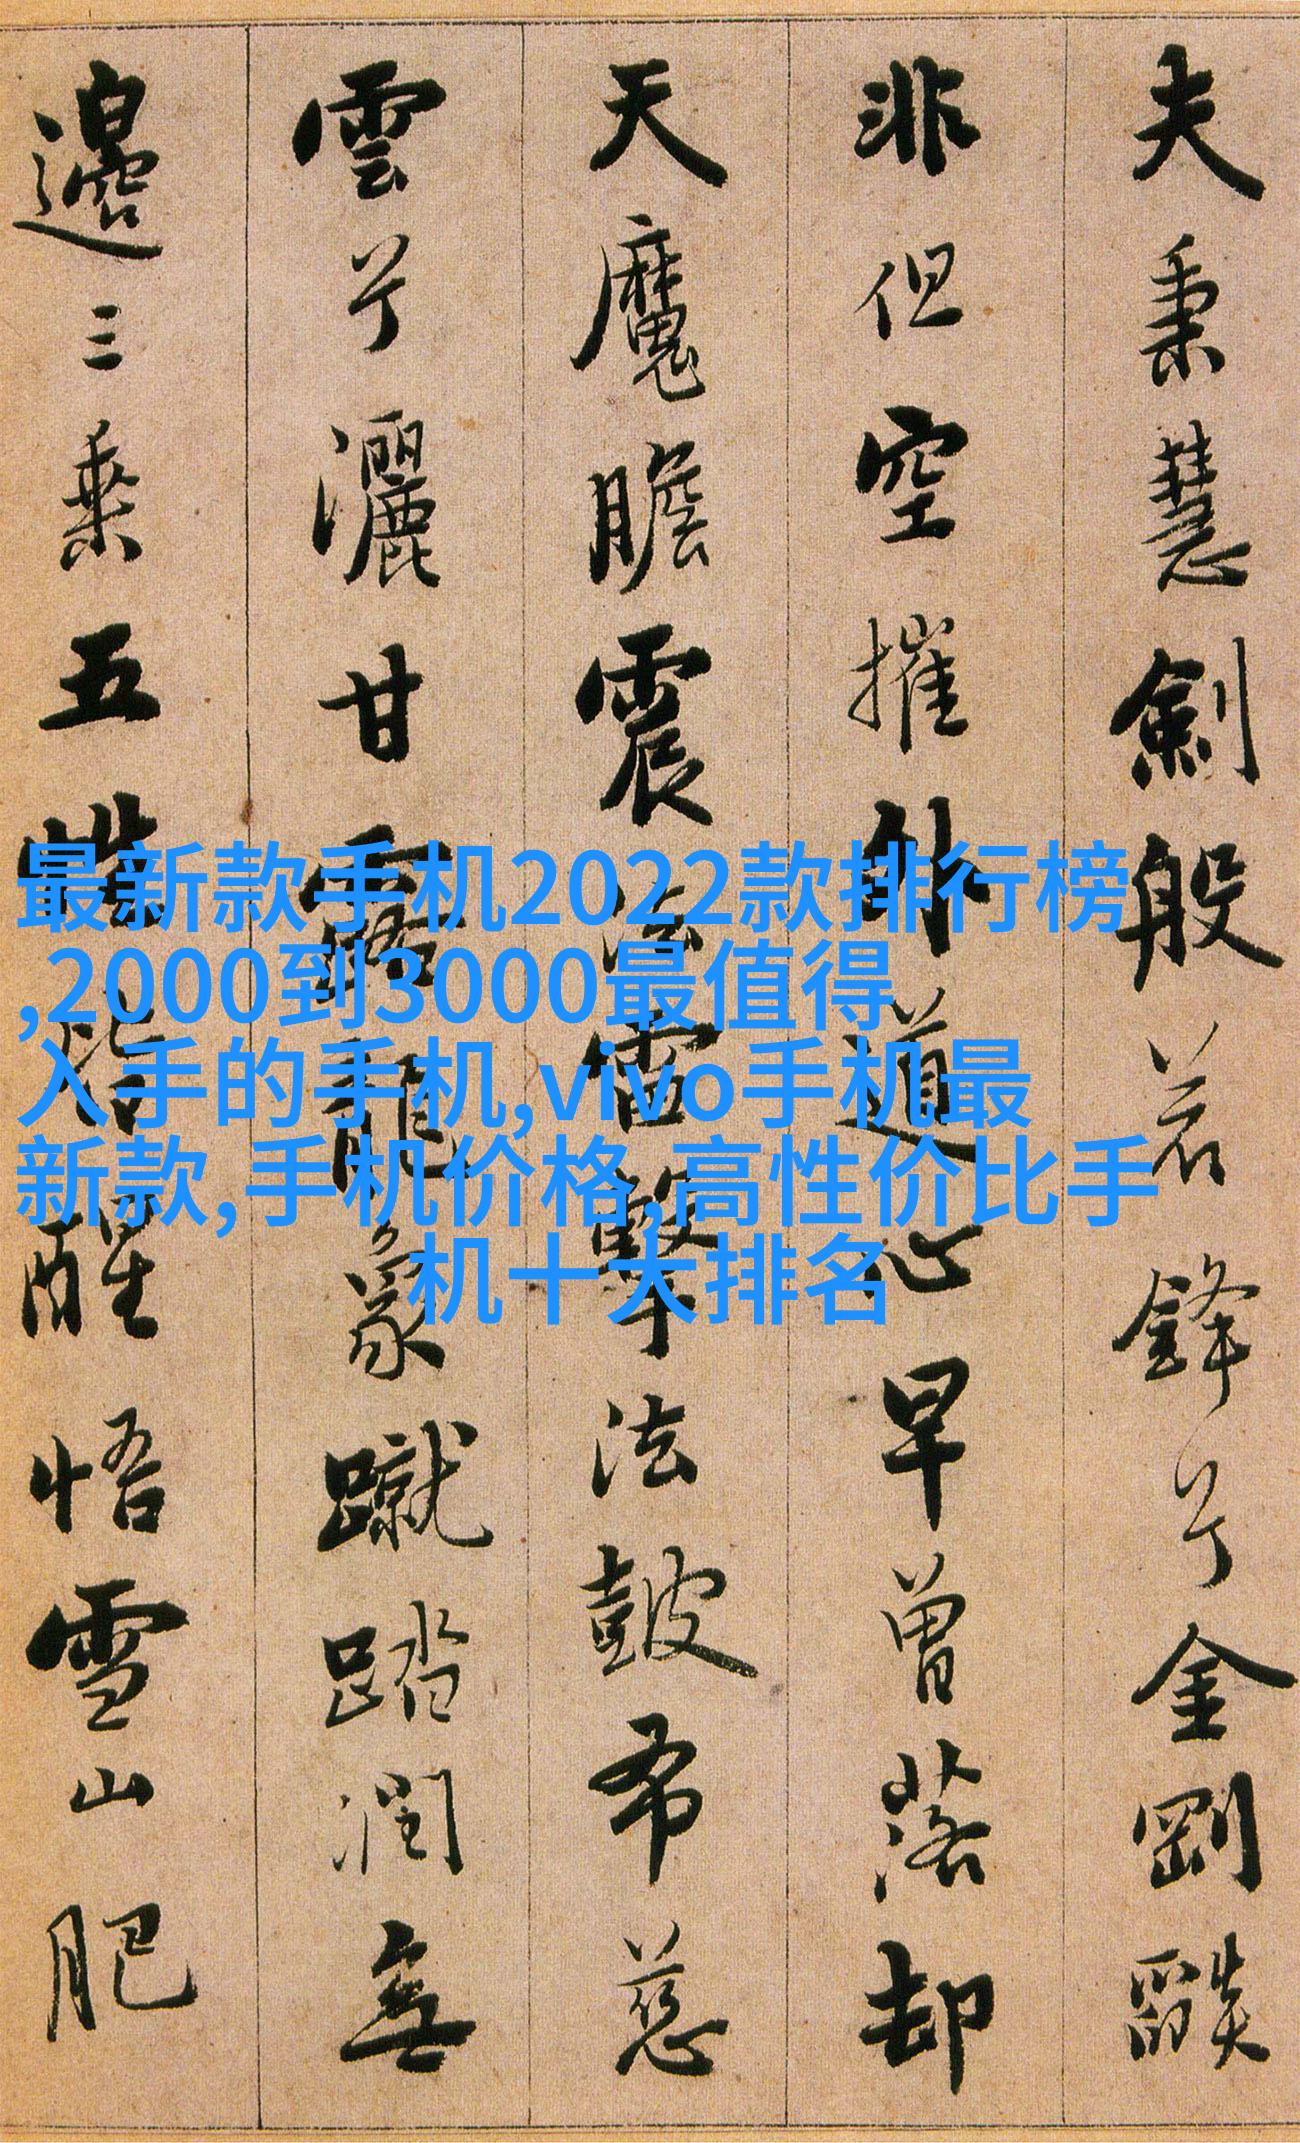 夫秉慧劍般若鋒兮金剛燄
非但空摧外道心早曾落却
天魔膽震法雷擊法皷布慈
雲兮灑甘露龍象蹴踏潤無
邊三乘五性皆醒悟雪山肥
最新款手机2022款排行榜
,2000到3000最值得
入手的手机,vivo手机最
新款,手机价格,高性价比手
机十大排名